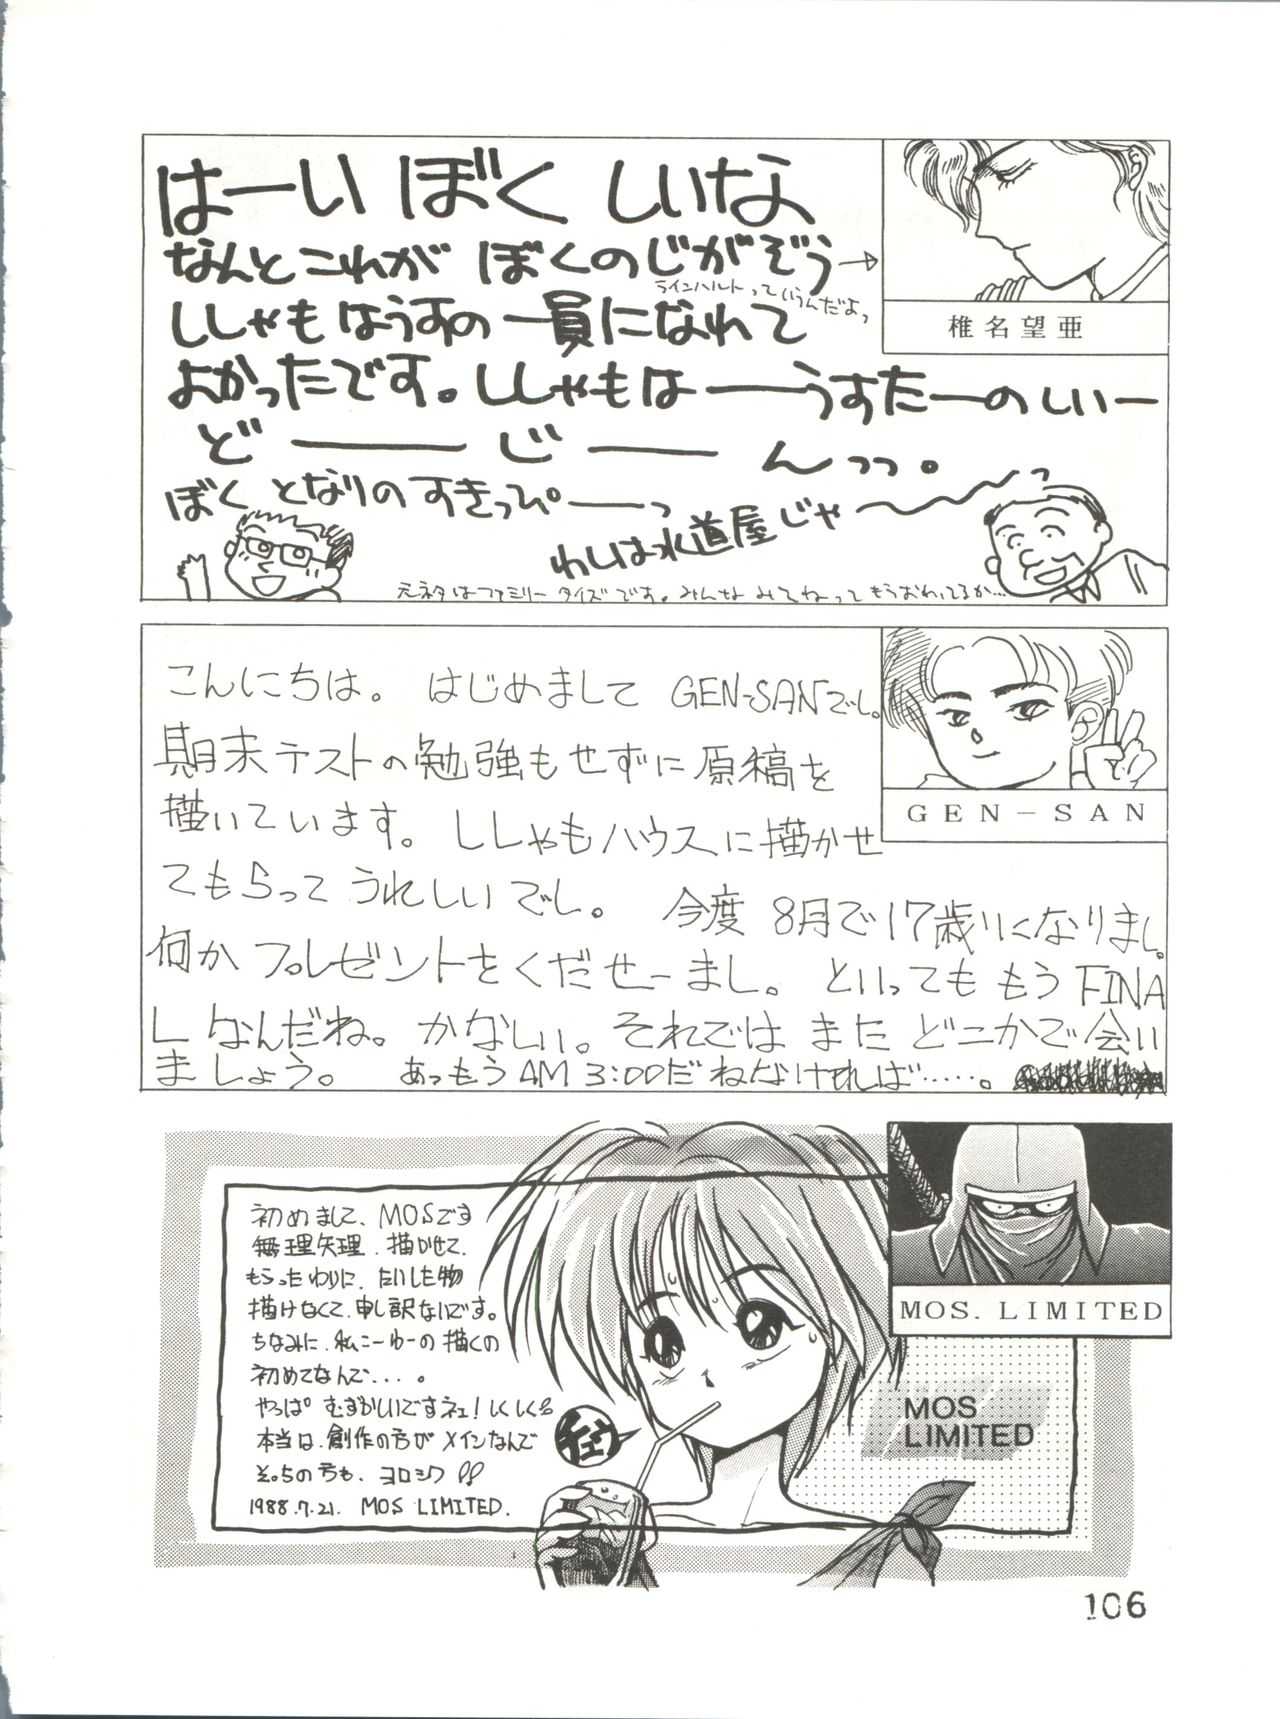 はーい ぼく しいな
なんとこれが ぼくのじがぞう→
ラインハルトって いうんだよっ
ししゃもはうすの一員になれて
よかったです。ししゃもは——うすたーのしいー
ど——じ——んっっ。
ぼく となりのすきっぴ——っ
わしは水道屋じゃ〜〜っ
元ネタはファミリータイズです。みんな みてねって もうおわってるか…
椎名望亜
こんにちは。はじめまして GEN-SANでし。
期末テストの勉強もせずに原稿を
描いています。ししゃもハウスに描かせ
てもらって うれしいでし。 今度 8月で17歳りになりまし。
何か プレゼントをくだせーまし。といっても もう FINA
L なんだね。かなしい。それでは また どこかで会い
ましょう。 あっもう AM 3:00だ ねなければ……。
GEN-SAN
初めまして、MOSです
無理矢理、描かせて、
もらったわりに、たいした物
描けなくて、申し訳ないです。
ちなみに、私こーゆーの描くの
初めてなんで‥‥。
やっぱ むずかしいですネェ!しくしく
本当は、創作の方がメインなんで
そっちの方も、ヨロシク!!
1988.7.21. MOS LIMITED.
チュウ
MOS
LIMITED
MOS. LIMITED
106